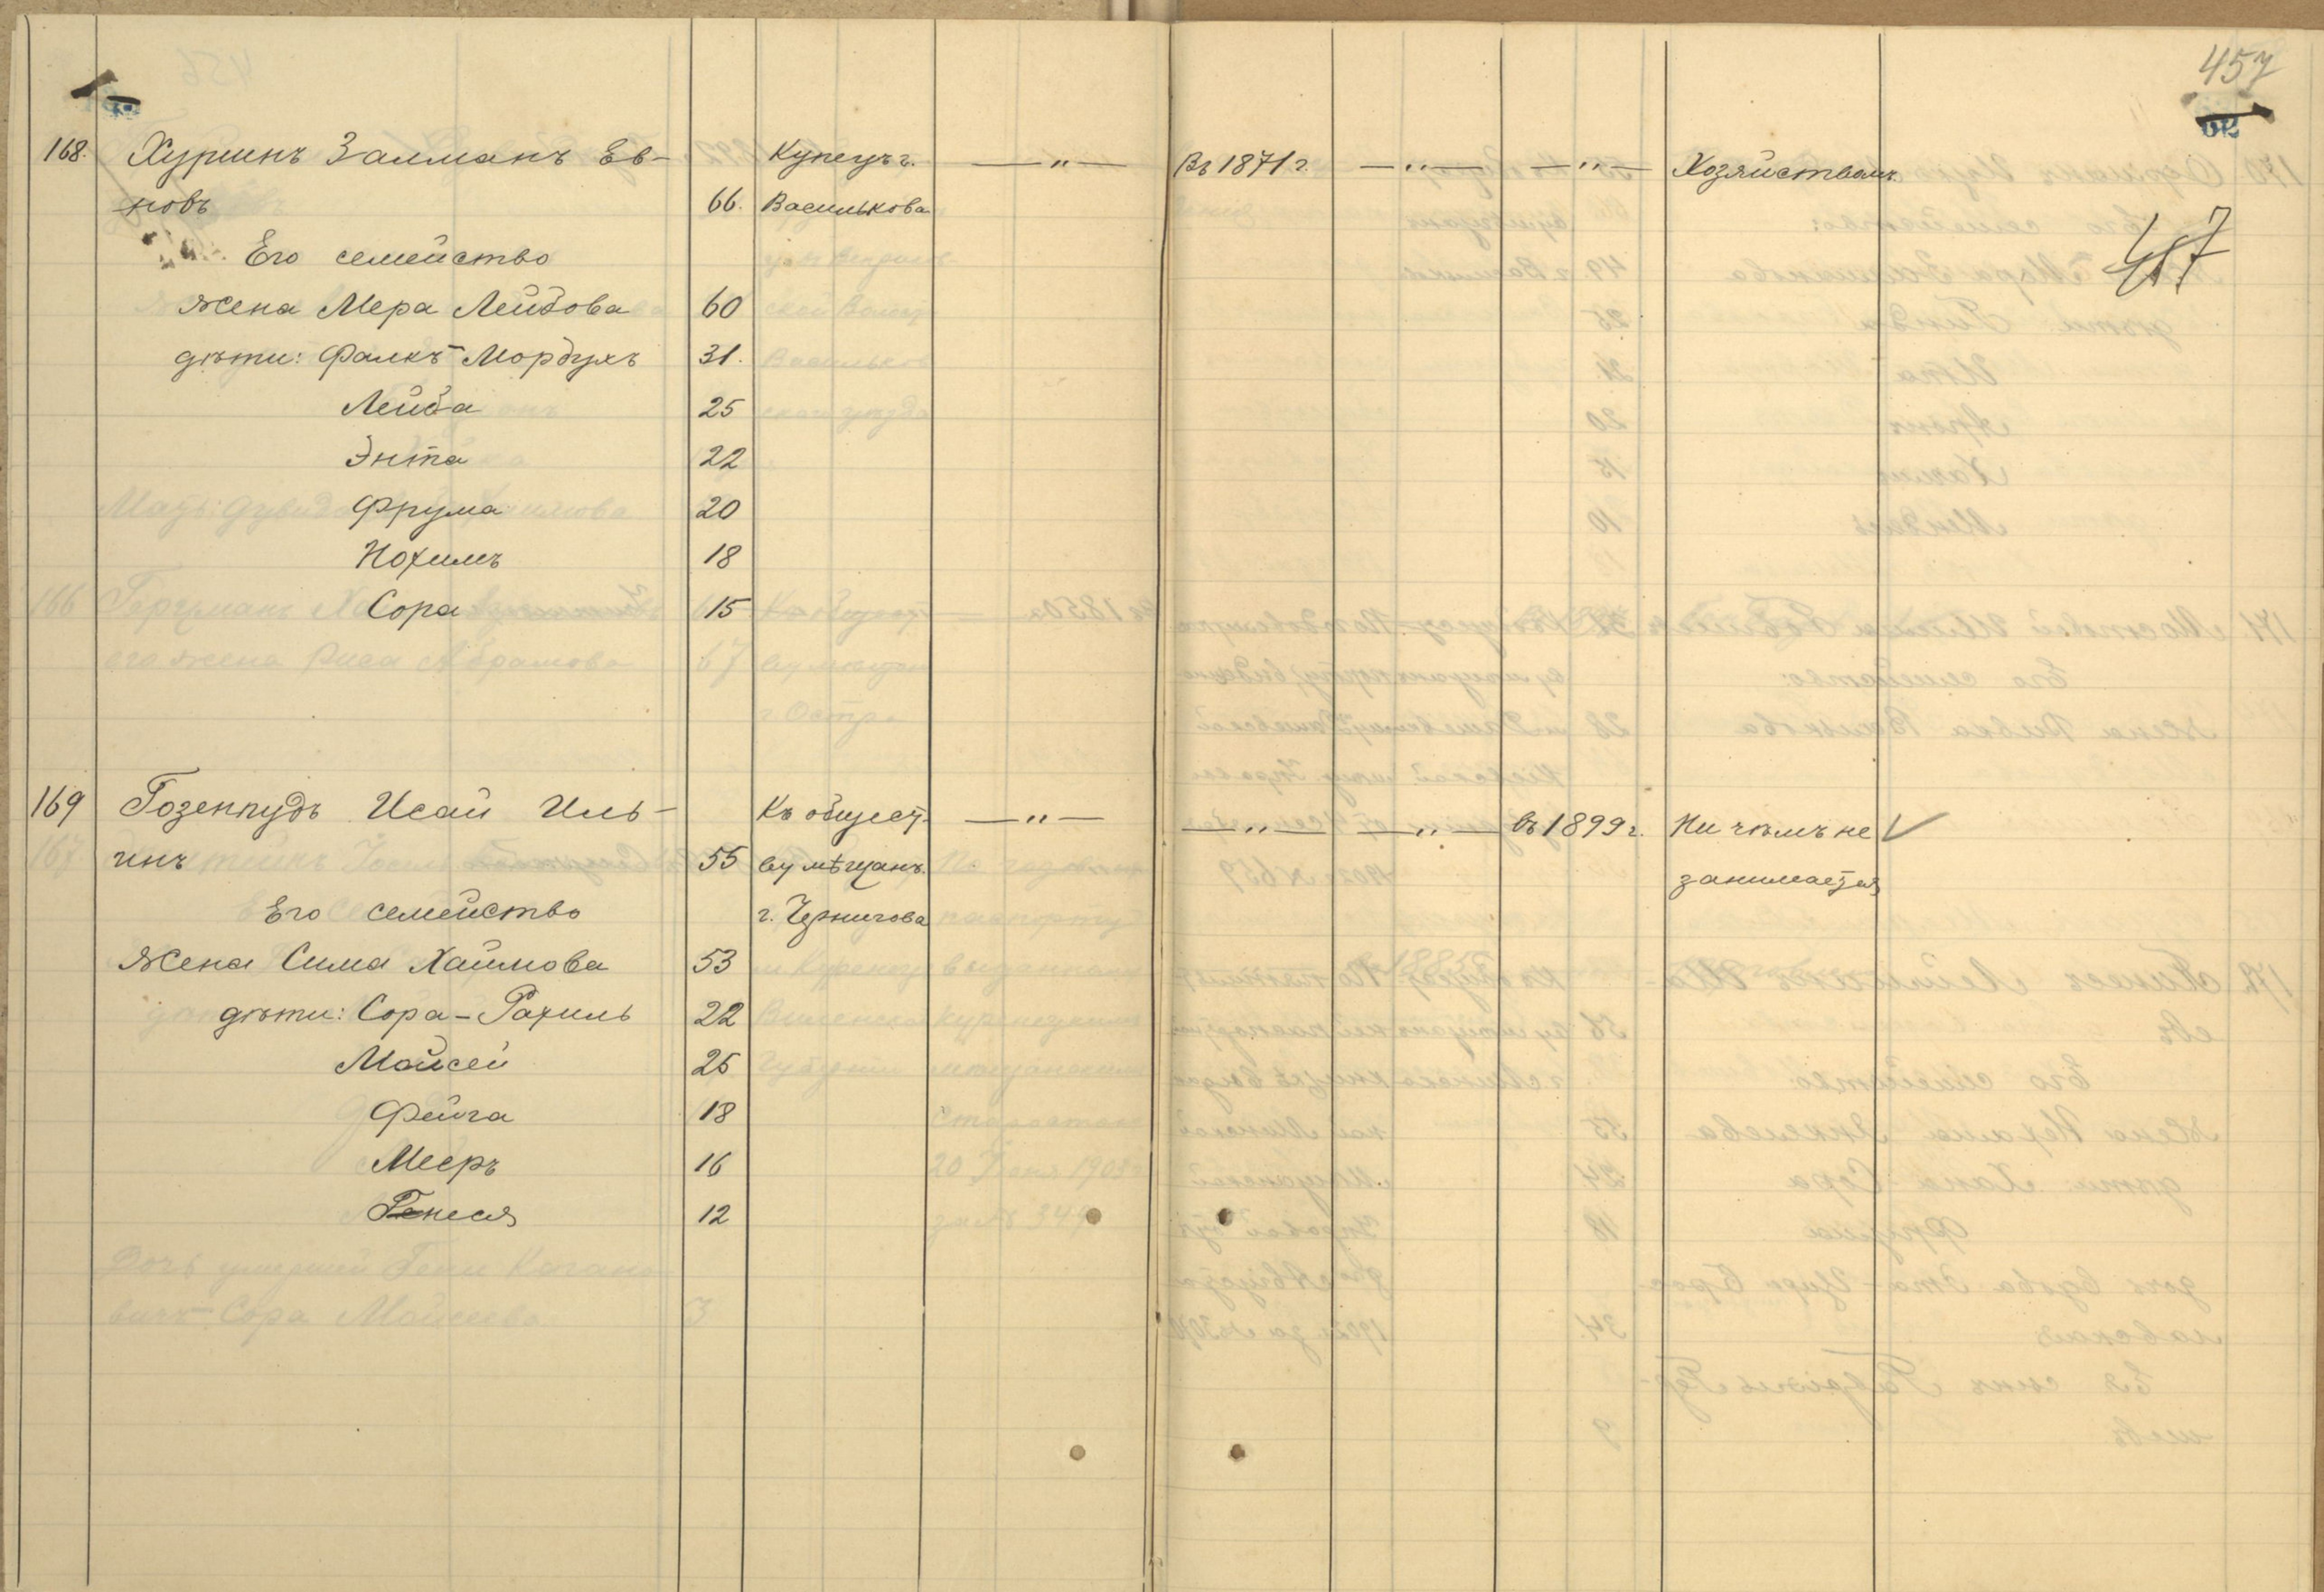 457
168. Хуринъ Залманъ Ев- Купецъ г. — " — Въ 1871 г. — " — — " — Хозяйствомъ
новъ 66. Василькова
457
Его семейство
жена Мера Лейбова 60
дѣти: Фалкъ-Мордухъ 31.
Лейба 25
Энта 22
Фрума 20
Нохимъ 18
Сора 15
169 Гозенпудъ Исай Иль- Къ общест. — " — — " — — " — въ 1899 г. Ни чѣмъ не
инъ 55 ву мѣщанъ занимается
Его семейство г. Чернигова
жена Сима Хаимова 53
дѣти: Сора-Рахиль 22
Мойсей 25
Фейга 18
Мееръ 16
Генеся 12